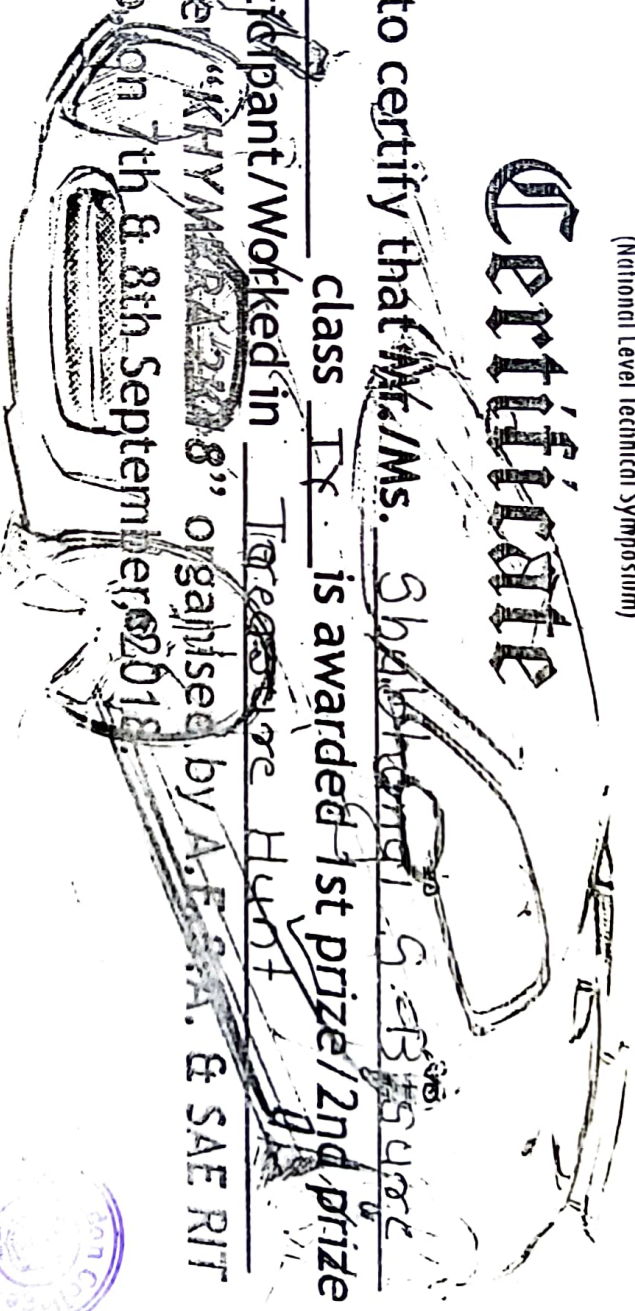 (National Level Technical Symposium)
Certificate
to certify that Mr./Ms. S. Bisure
class IX is awarded 1st prize/2nd prize
icipant/Worked in Treasure Hunt
er “KHYMERA 2018” organised by A.E.S.A. & SAE RIT
, on 7th & 8th September, 2018.